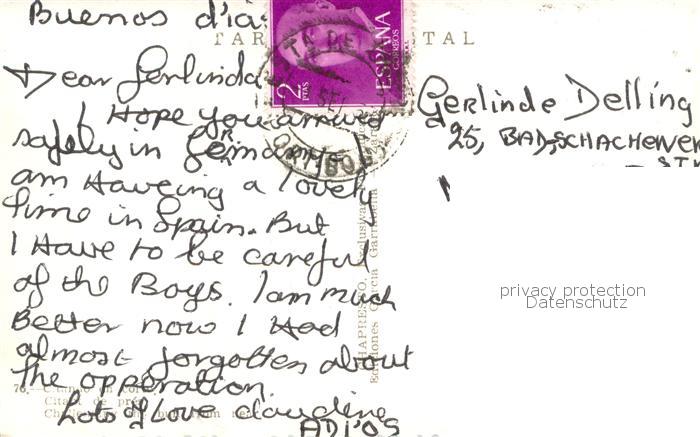 Buenos d'ia:
Dear Gerlinda
I Hope you arrived
safely in Germany
am Haveing a lovely
time in Spain. But
I Have to be careful
of the Boys. I am much
Better now I Had
almost forgotten about
the opperation.
Lots of Love Claudine
ADI'OS
Gerlinde Delling
25, BAD-SCHACHENER
STR
TAR TAL
2
PTAS
ESPAÑA
CORREOS
Ediciones García Garrabella
privacy protection
Datenschutz
76.-